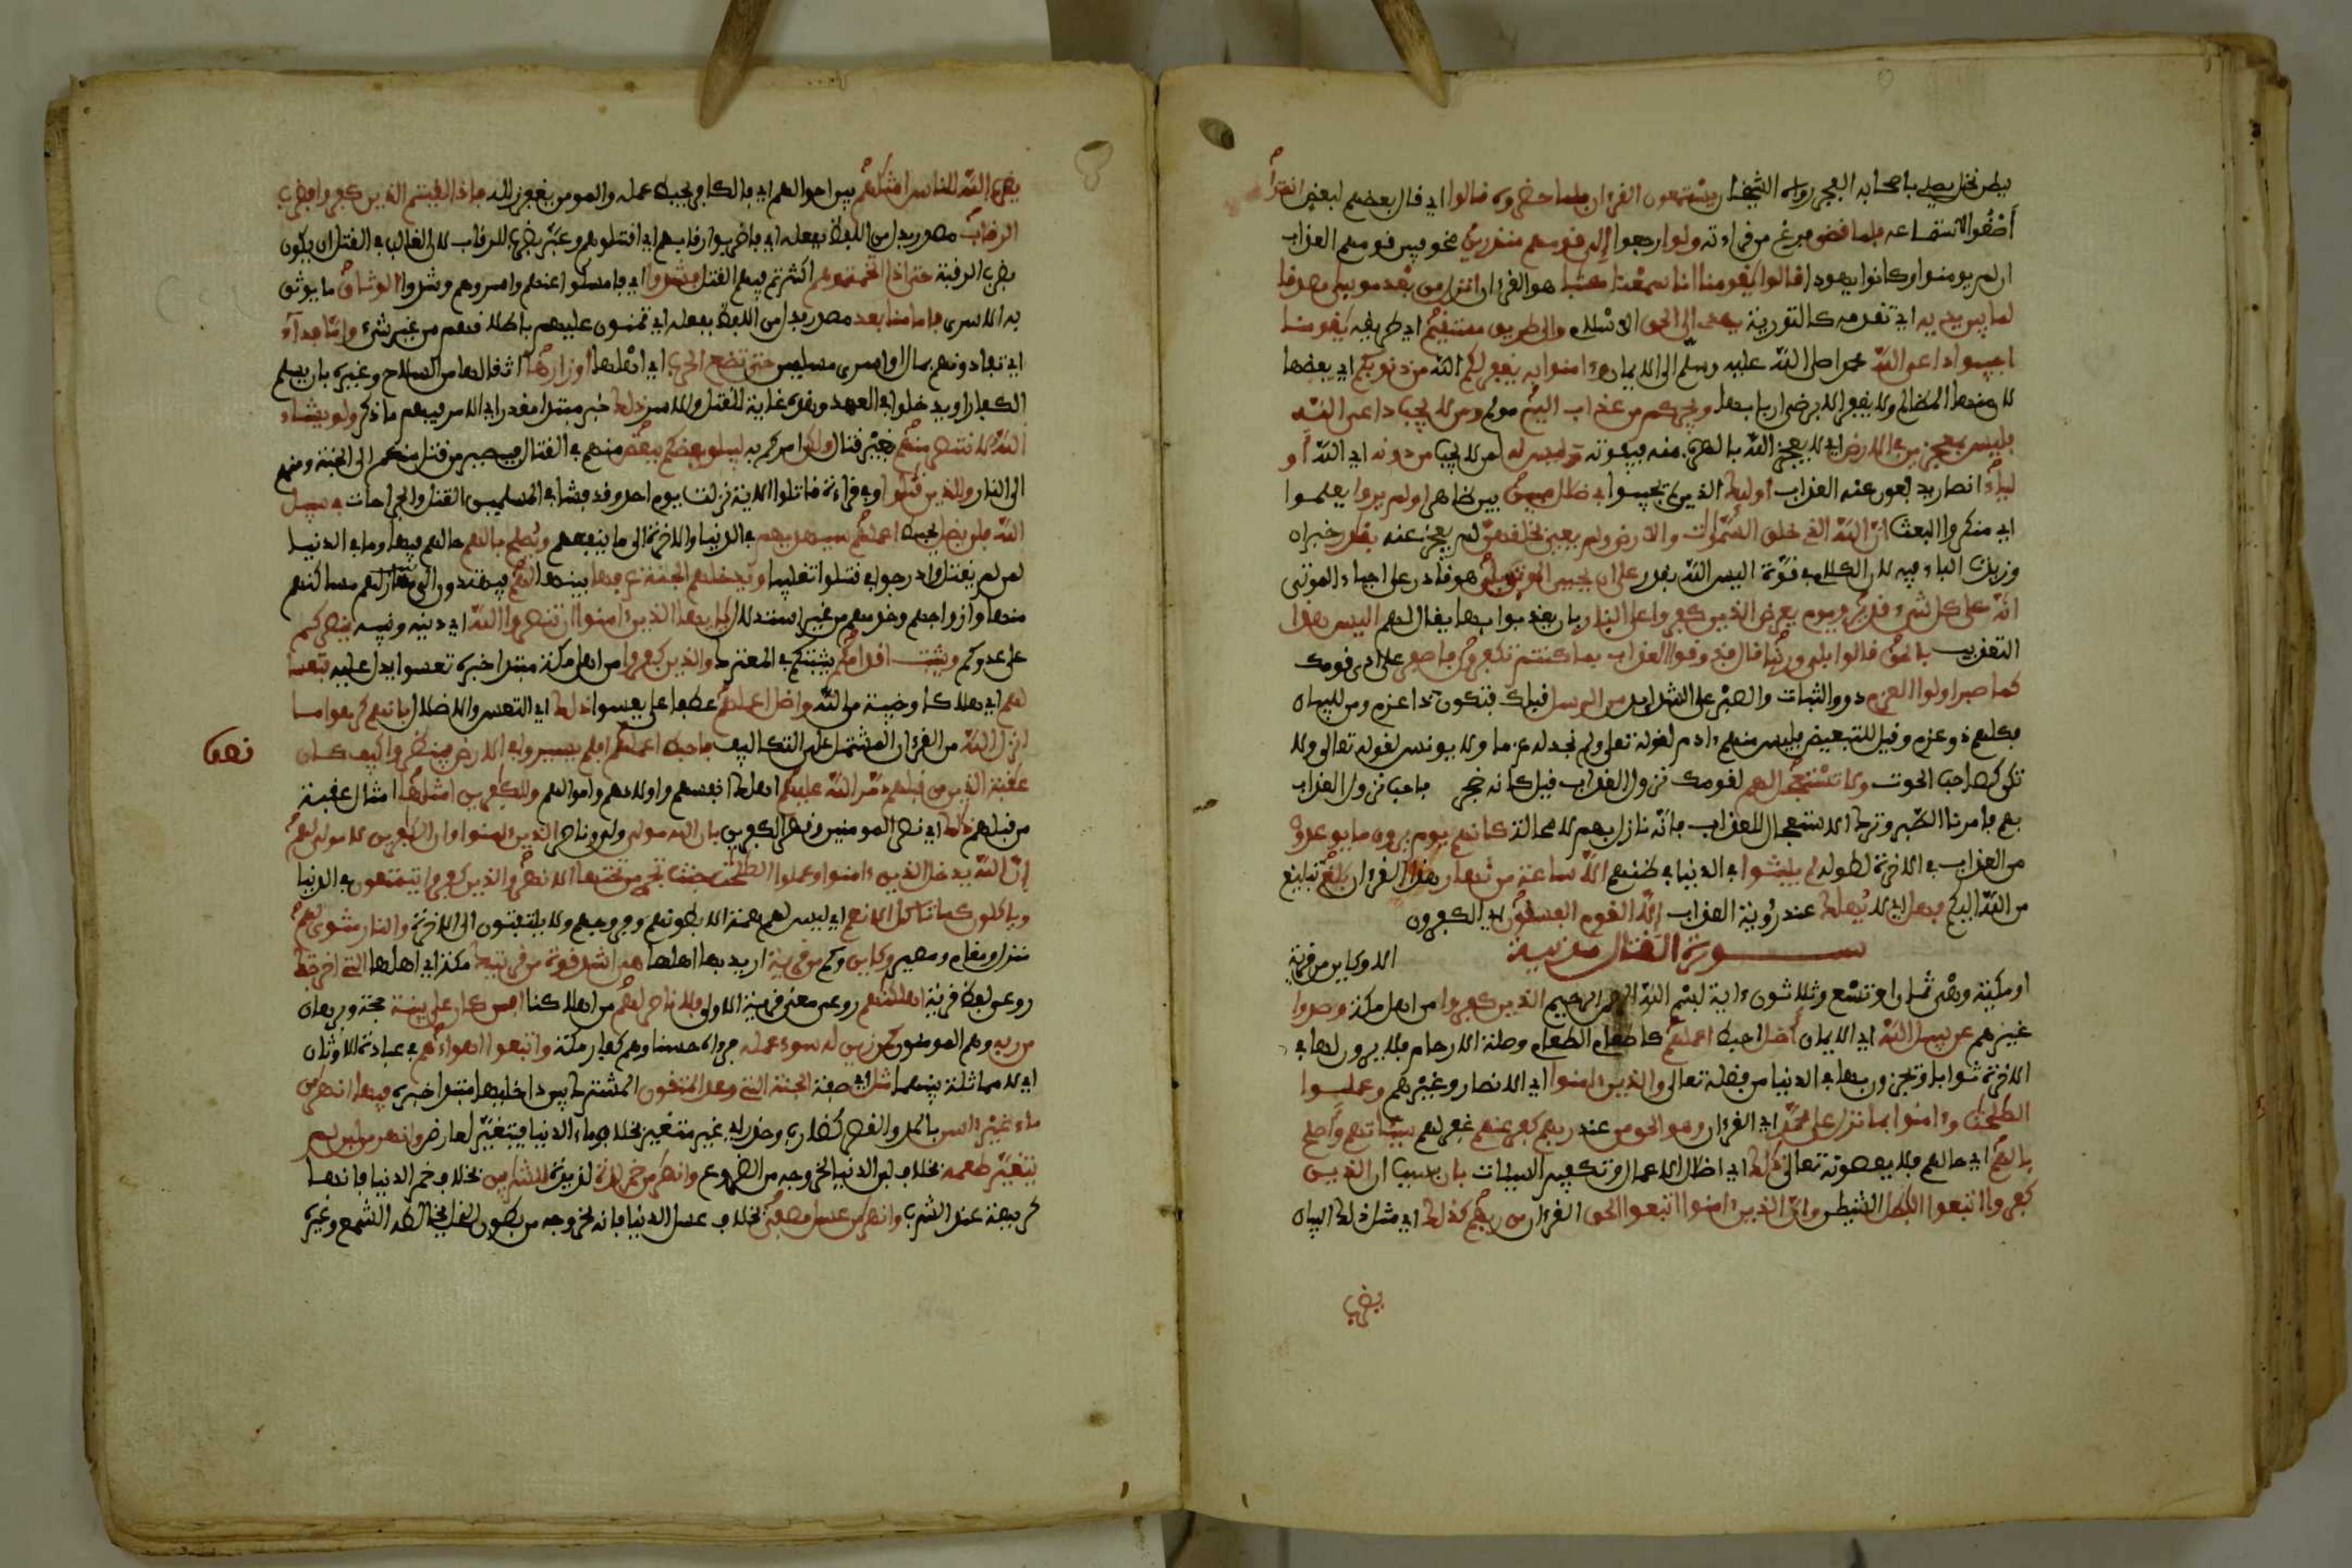 ببطن نخل يصلي باصحابه الفجر رواه الشيخان يستمعون القرءان فلما حضروه قالوا اي قال بعضهم لبعض انصتوا
أصغوا لاستماعه فلما قضى فرغ من قراءته ولوا رجعوا إلى قومهم منذرين مخوفين قومهم العذاب
ان لم يومنوا وكانوا يهودا قالوا يقومنا انا سمعنا كتبا هو القرءان انزل من بعد موسى مصدقا
لما بين يديه اي تقدمه كالتورية يهدي الى الحق الاسلام والى طريق مستقيم اي طريقه يقومنا
اجيبوا داعي الله محمدا صلى الله عليه وسلم الى الايمان وءامنوا به يغفر لكم الله من ذنوبكم اي بعضها
لان منها المظالم ولا يغفر الا برضى اربابها ويجركم من عذاب اليم مولم ومن لا يجب داعي الله
فليس بمعجز في الارض اي لا يعجز الله بالهرب منه فيفوته وليس له لمن لا يجب من دونه اي الله أو
لياء انصار يدفعون عنه العذاب أوليك الذين لم يجيبوا في ضلل مبين بين ظاهر اولم يروا يعلموا
اي منكروا البعث ان الله الذي خلق السموات والارض ولم يعي بخلقهن لم يعجز عنه بقدر خبر ان
وزيدت الباء فيه لان الكلام في قوة اليس الله بقدر على ان يحيي الموتى بلى هو قادر على احياء الموتى
انه على كل شيء قدير ويوم يعرض الذين كفروا على النار بان يعذبوا بها يقال لهم اليس هذا
التعذيب بالحق قالوا بلى وربنا قال فذوقوا العذاب بما كنتم تكفرون فاصبر على اذى قومك
كما صبر اولوا العزم ذووا الثبات والصبر على الشدايد من الرسل قبلك فتكون ذا عزم ومن للبيان
فكلهم ذو عزم وقيل للتبعيض فليس منهم ءادم لقوله تعالى ولم نجد له عزما ولا يونس لقوله تعالى ولا
تكن كصاحب الحوت ولا تستعجل لهم لقومك نزول العذاب قيل كانه ضجر فاحب نزول العذاب
بهم فامر بالصبر وترك الاستعجال للعذاب فانه نازل بهم لا محالة كانهم يوم يرون ما يوعدون
من العذاب في الاخرة لطوله لم يلبثوا في الدنيا في ظنهم الا ساعة من نهار هذا القرءان بلغ تبليغ
من الله اليكم فهل اي لا يهلك عند رؤية العذاب إلا القوم الفسقون اي الكفرون
سورة القتال مدنية الا وكاين من قرية
او مكية وهي ثمان او تسع وثلاثون ءاية بسم الله الرحمن الرحيم الذين كفروا من اهل مكة وصدوا
غيرهم عن سبيل الله اي الايمان أضل احبط اعملهم كاطعام الطعام وصلة الارحام فلا يرون لها في
الاخرة ثوابا ويجزون بها في الدنيا من فضله تعالى والذين ءامنوا اي الانصار وغيرهم وعملوا
الصلحت وءامنوا بما نزل على محمد اي القرءان وهو الحق من عند ربهم كفر عنهم غفر لهم سيئاتهم وأصلح
بالهم اي حالهم فلا يعصونه تعالى ذلك اي اضلال الاعمال وتكفير السيئات بان بسبب ان الذين
كفروا اتبعوا البطل الشيطن وان الذين ءامنوا اتبعوا الحق القرءان من ربهم كذلك اي مثل ذلك البيان
يضرب
يضرب الله للناس امثلهم يبين احوالهم اي فالكافر يحبط عمله والمومن يغفر زلله فاذا لقيتم الذين كفروا فضرب
الرقاب مصدر بدل من اللفظ بفعله اي فاضربوا رقابهم اي اقتلوهم وعبر بضرب الرقاب لان الغالب في القتل ان يكون
بضرب الرقبة حتى اذا اثخنتموهم اكثرتم فيهم القتل فشدوا اي فامسكوا عنهم واسروهم وشدوا الوثاق ما يوثق
به الاسرى فاما منا بعد مصدر بدل من اللفظ بفعله اي تمنون عليهم باطلاقهم من غير شيء واما فداء
اي تفادونهم بمال او اسرى مسلمين حتى تضع الحرب اي اهلها أوزارها اثقالها من السلاح وغيره بان يسلم
الكفار او يدخلوا في العهد وهذه غاية للقتل والاسر ذلك خبر مبتدا مقدر اي الامر فيهم ما ذكر ولو يشاء
الله لانتصر منهم بغير قتال ولكن امركم به ليبلو بعضكم ببعض منهم في القتال فيصير من قتل منكم الى الجنة ومنهم
الى النار والذين قتلوا وفي قراءة قاتلوا الاية نزلت يوم احد وقد فشا في المسلمين القتل والجراحات في سبيل
الله فلن يضل يحبط اعملهم سيهديهم في الدنيا والاخرة الى ما ينفعهم ويصلح بالهم حالهم فيهما وما في الدنيا
لمن لم يقتل وادرجوا في قتلوا تغليبا ويدخلهم الجنة عرفها بينها لهم فيهتدون الى مساكنهم
منها وازواجهم وخدمهم من غير استدلال يايها الذين ءامنوا ان تنصروا الله اي دينه ونبيه ينصركم
على عدوكم ويثبت اقدامكم يثبتكم في المعترك والذين كفروا من اهل مكة مبتدا خبره تعسوا يدل عليه فتعسا
لهم اي هلاكا وخيبة من الله واضل اعملهم عطف على تعسوا ذلك اي التعس والاضلال بانهم كرهوا ما
انزل الله من القرءان المشتمل على التكاليف فاحبط اعملهم افلم يسيروا في الارض فينظروا كيف كان
نصف
عقبة الذين من قبلهم دمر الله عليهم اهلك انفسهم واولادهم واموالهم وللكفرين امثلها امثال عقبة
من قبلهم ذلك اي نصر المومنين وقهر الكفرين بان الله مولى ولي وناصر الذين ءامنوا وان الكفرين لا مولى لهم
إن الله يدخل الذين ءامنوا وعملوا الصلحت جنت تجري من تحتها الانهر والذين كفروا يتمتعون في الدنيا
وياكلون كما تاكل الانعم اي ليس لهم همة الا بطونهم وفروجهم ولا يلتفتون الى الاخرة والنار مثوى لهم
منزل ومقام ومصير وكاين وكم من قرية اريد بها اهلها هي اشد قوة من قريتك مكة اي اهلها التي اخرجتك
روعي لفظ قرية اهلكنهم روعي معنى قرية الاولى فلا ناصر لهم من اهلاكنا افمن كان على بينة حجة وبرهان
من ربه وهم المومنون كمن زين له سوء عمله فرءاه حسنا وهم كفار مكة واتبعوا اهواءهم في عبادة الاوثان
اي لا مماثلة بينهما مثل اي صفة الجنة التي وعد المتقون المشتركة بين داخليها مبتدا خبره فيها انهر من
ماء غير ءاسن بالمد والقصر كضارب وحذر اي غير متغير بخلاف ماء الدنيا فيتغير لعارض وانهر من لبن لم
يتغير طعمه بخلاف لبن الدنيا لخروجه من الضروع وانهر من خمر لذة لذيذة للشاربين بخلاف خمر الدنيا فانها
كريهة عند الشرب وانهر من عسل مصفى بخلاف عسل الدنيا فانه لخروجه من بطون النحل يخالطه الشمع وغيره